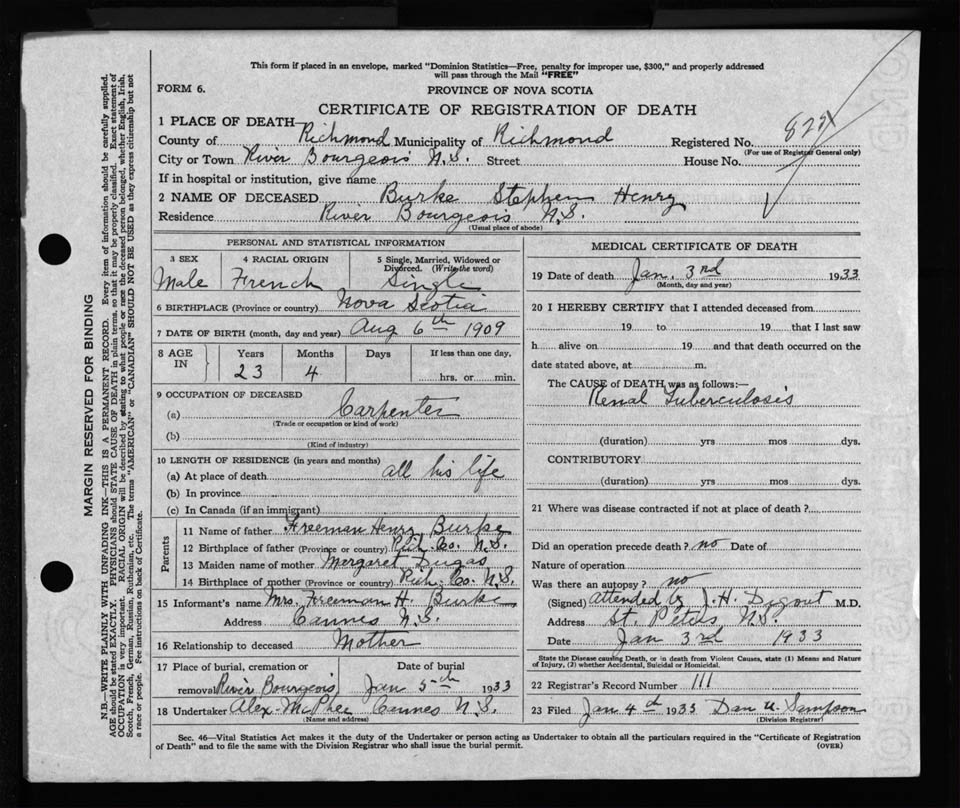 This form if placed in an envelope, marked "Dominion Statistics—Free, penalty for improper use, $300," and properly addressed
will pass through the Mail "FREE"
FORM 6.
PROVINCE OF NOVA SCOTIA
CERTIFICATE OF REGISTRATION OF DEATH
1 PLACE OF DEATH
County of Richmond Municipality of Richmond Registered No.
(For use of Registrar General only)
City or Town River Bourgeois N.S. Street House No.
If in hospital or institution, give name
2 NAME OF DECEASED Burke Stephen Henry
Residence River Bourgeois N.S.
(Usual place of abode)
PERSONAL AND STATISTICAL INFORMATION
3 SEX 4 RACIAL ORIGIN 5 Single, Married, Widowed or
Divorced. (Write the word)
Male French Single
6 BIRTHPLACE (Province or country) Nova Scotia
7 DATE OF BIRTH (month, day and year) Aug 6th 1909
8 AGE IN Years Months Days If less than one day,
23 4 hrs. or min.
9 OCCUPATION OF DECEASED
(a) Carpenter
(Trade or occupation or kind of work)
(b)
(Kind of industry)
10 LENGTH OF RESIDENCE (in years and months)
(a) At place of death all his life
(b) In province
(c) In Canada (if an immigrant)
Parents
11 Name of father Freeman Henry Burke
12 Birthplace of father (Province or country) Rich. Co. N.S.
13 Maiden name of mother Mergaret Dugas
14 Birthplace of mother (Province or country) Rich. Co. N.S.
15 Informant's name Mrs. Freeman H. Burke
Address Cannes N.S.
16 Relationship to deceased Mother
17 Place of burial, cremation or Date of burial
removal River Bourgeois Jan 5th 1933
18 Undertaker Alex. McPhee Cannes N.S.
(Name and address)
MEDICAL CERTIFICATE OF DEATH
19 Date of death Jan. 3rd 1933
(Month, day and year)
20 I HEREBY CERTIFY that I attended deceased from
19 to 19 that I last saw
h alive on 19 and that death occurred on the
date stated above, at m.
The CAUSE of DEATH was as follows:—
Renal Tuberculosis
(duration) yrs mos dys.
CONTRIBUTORY
(duration) yrs mos dys.
21 Where was disease contracted if not at place of death?
Did an operation precede death? no Date of
Nature of operation
Was there an autopsy? no
(Signed) Attended by J. H. Digout M.D.
Address St. Peters, N.S.
Date Jan 3rd 1933
State the Disease causing Death, or in death from Violent Causes, state (1) Means and Nature
of Injury, (2) whether Accidental, Suicidal or Homicidal.
22 Registrar's Record Number 111
23 Filed Jan 4th 1933 Dan U. Sampson
(Division Registrar)
Sec. 46—Vital Statistics Act makes it the duty of the Undertaker or person acting as Undertaker to obtain all the particulars required in the "Certificate of Registration
of Death" and to file the same with the Division Registrar who shall issue the burial permit. (OVER)
MARGIN RESERVED FOR BINDING
N.B.—WRITE PLAINLY WITH UNFADING INK—THIS IS A PERMANENT RECORD. Every item of information should be carefully supplied.
AGE should be stated EXACTLY. PHYSICIANS should STATE CAUSE OF DEATH in plain terms, so that it may be properly classified. Exact statement of
OCCUPATION is very important. RACIAL ORIGIN will be described by stating to what people or race the deceased person belonged, whether English, Irish,
Scotch, French, German, Russian, Ruthenian, etc. The terms "AMERICAN" or "CANADIAN" SHOULD NOT BE USED as they express citizenship but not
a race or people. Fee instructions on back of Certificate.